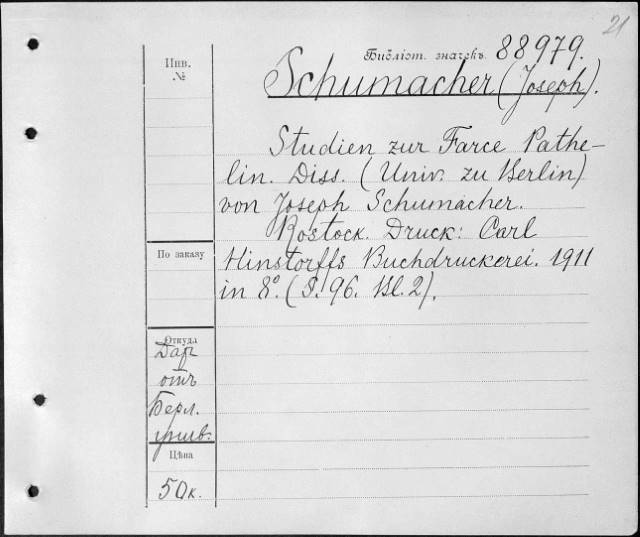 21
Библіот. значекъ 88979.
Инв.
№
Schumacher (Joseph).
Studien zur Farce Pathe-
lin. Diss. (Univ. zu Berlin)
von Joseph Schumacher.
Rostock. Druck: Carl
По заказу
Hinstorffs Buchdruckerei. 1911
in 8º. (S. 96. Bl. 2).
Откуда
Даръ
отъ
Берл.
унив.
Цѣна
50к.